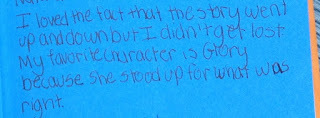 I loved the fact that the story went
up and down but I didn't get lost
My favorite character is Glory
because she stood up for what was
right.